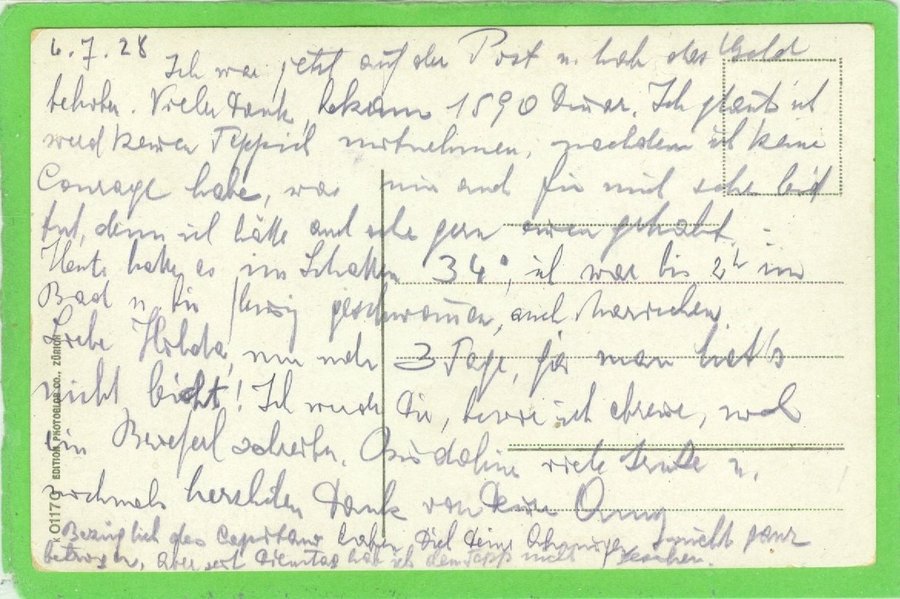 6.7.28
Ich war jetzt auf der Post u. hab das Geld
behoben. Vielen Dank, bekam 1590 Dinar. Ich glaube ich
werd keinen Teppich mitnehmen, nachdem ich keine
Courage habe, was mir auch für mich sehr leid
tut, denn ich hätte auch sehr gern einen gehabt.
Heute hatte es im Schatten 34°, ich war bis 2h im
Bad u. bin fleissig geschwommen, auch Marichen.
Liebe Hilda, nur mehr 3 Tage, ja man hat's
nicht leicht! Ich werde Dir, bevor ich abreise, noch
ein schreiben. Bis dahin viele u.
nochmals herzlichen Dank von Deiner
Bezüglich des Capitans haben Dich Deine Ahnungen nicht ganz
betrogen, aber seit Dienstag hab ich den Tepp nicht gesehen.
K 0117 EDITION PHOTOGLOB CO., ZÜRICH